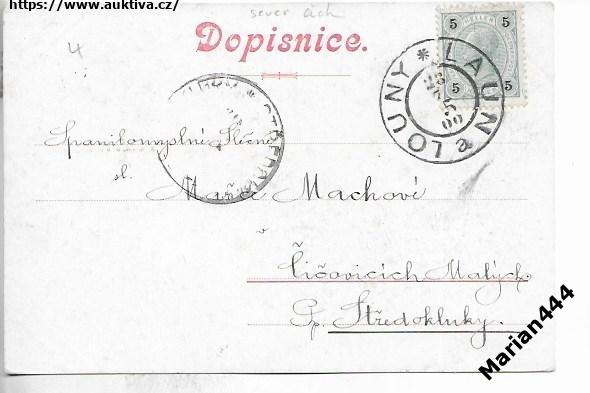 https://www.auktiva.cz/
sever čech
4
Dopisnice.
5 HELLER 5
5 5
LAUN * LOUNY
Spanilomyslné Slečně
sl. Mařce Machové
v
Čičovicích Malých.
P. Středokluky.
Marian444